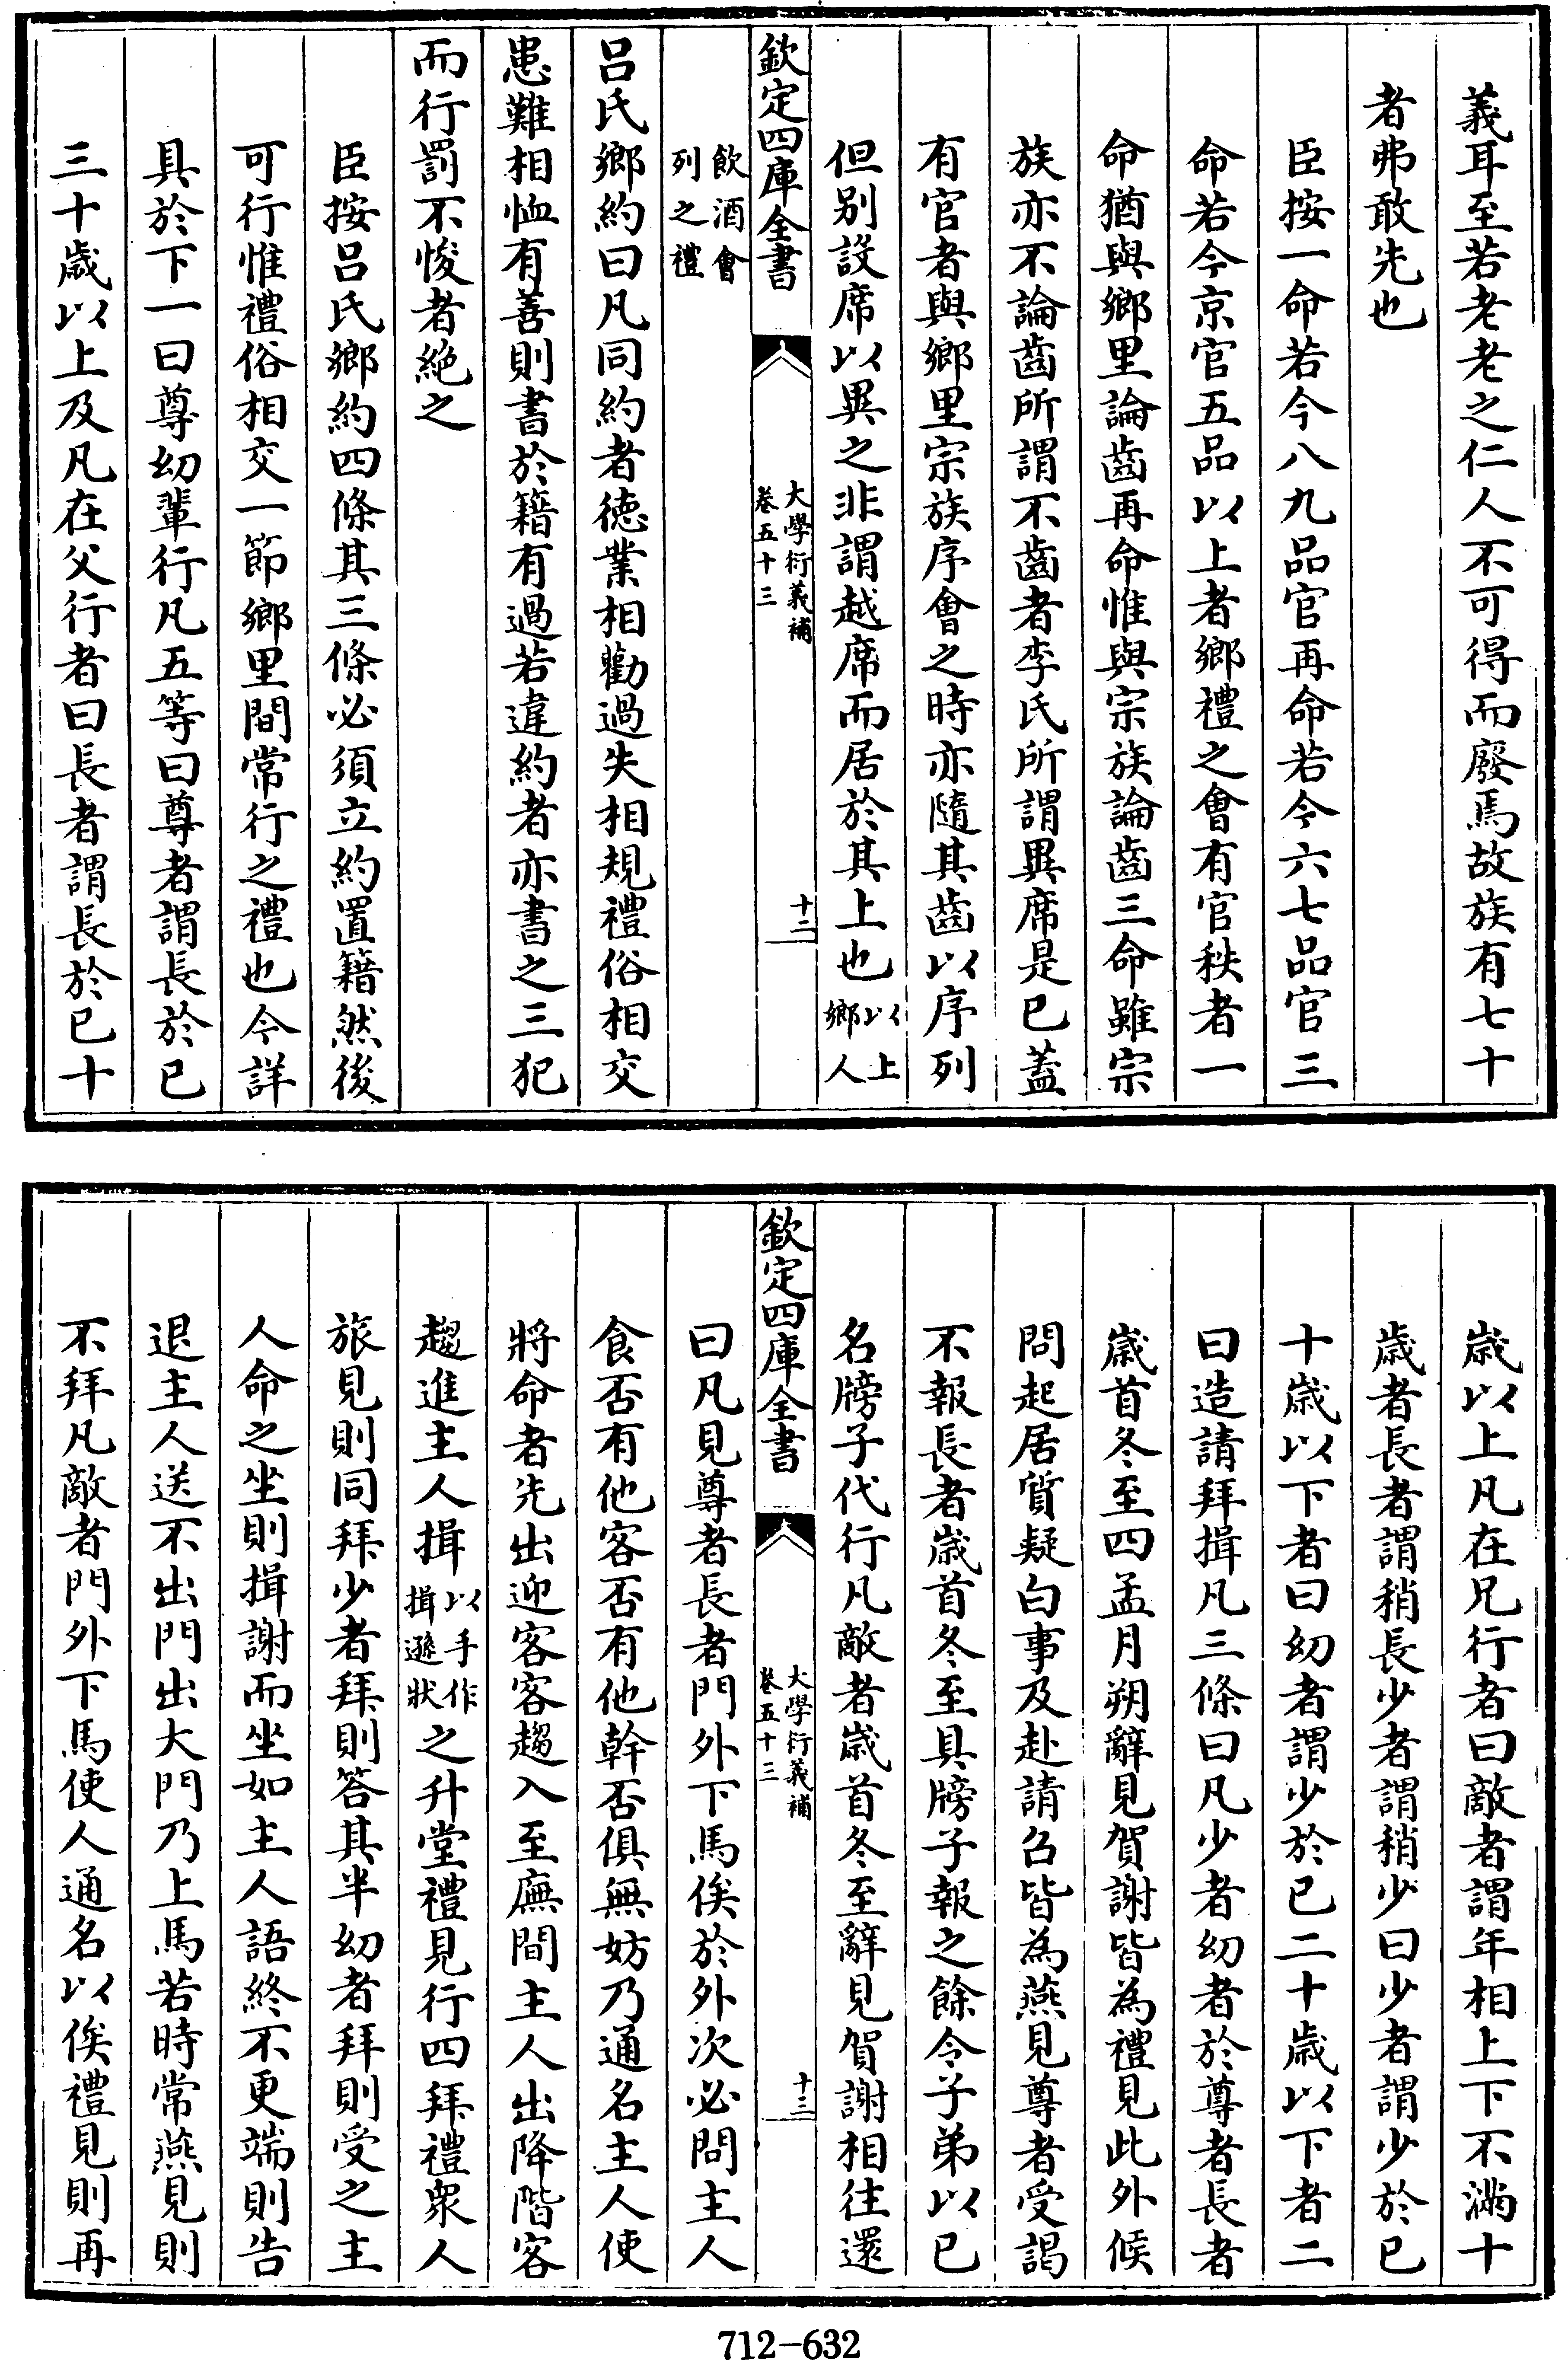 義耳至若老老之仁人不可得而廢馬故族有七十
者弗敢先也
臣按一命若今八九品官再命若今六七品官三
命若今京官五品以上者鄉禮之會有官秩者一
命猶與鄉里論齒再命惟與宗族論齒三命雖宗
族亦不論齒所謂不齒者李氏所謂異席是已蓋
有官者與鄉里宗族序會之時亦隨其齒以序列
但别設席以異之非謂越席而居於其上也以上鄉人
欽定四庫全書
大學衍義補
卷五十三
十二
飲酒會
列之禮
呂氏鄉約曰凡同約者德業相勸過失相規禮俗相交
患難相恤有善則書於籍有過若違約者亦書之三犯
而行罰不悛者絶之
臣按呂氏鄉約四條其三條必須立約置籍然後
可行惟禮俗相交一節鄉里間常行之禮也今詳
具於下一曰尊幼輩行凡五等曰尊者謂長於已
三十歲以上及凡在父行者曰長者謂長於已十
歲以上凡在兄行者曰敵者謂年相上下不滿十
歲者長者謂稍長少者謂稍少曰少者謂少於已
十歲以下者曰幼者謂少於已二十歲以下者二
曰造請拜揖凡三條曰凡少者幼者於尊者長者
歲首冬至四孟月朔辭見賀謝皆為禮見此外候
問起居質疑白事及赴請召皆為燕見尊者受謁
不報長者歲首冬至具牓子報之餘令子弟以已
名牓子代行凡敵者歲首冬至辭見賀謝相往還
欽定四庫全書
大學衍義補
卷五十三
十三
曰凡見尊者長者門外下馬俟於外次必問主人
食否有他客否有他幹否俱無妨乃通名主人使
將命者先出迎客客趨入至廡間主人出降階客
趨進主人揖以手作揖遜狀之升堂禮見行四拜禮衆人
旅見則同拜少者拜則答其半幼者拜則受之主
人命之坐則揖謝而坐如主人語終不更端則告
退主人送不出門出大門乃上馬若時常燕見則
不拜凡敵者門外下馬使人通名以俟禮見則再
712-632